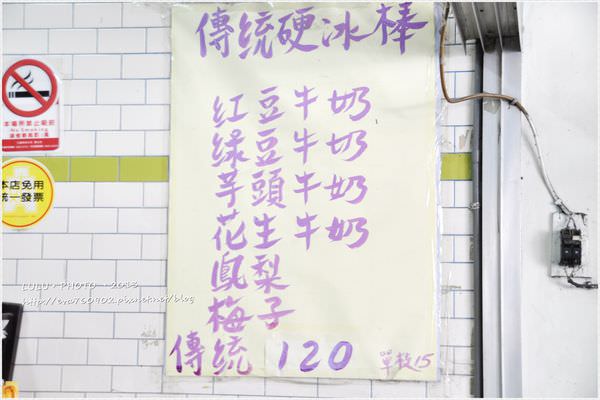 傳統硬冰棒
紅豆牛奶
綠豆牛奶
芋頭牛奶
花生牛奶
鳳梨
梅子
傳統 120 單枝15
本場所禁止吸菸
No Smoking
本店免用
統一發票
LULU·PHOTO·2013
http://eva760902.pixnet.net/blog